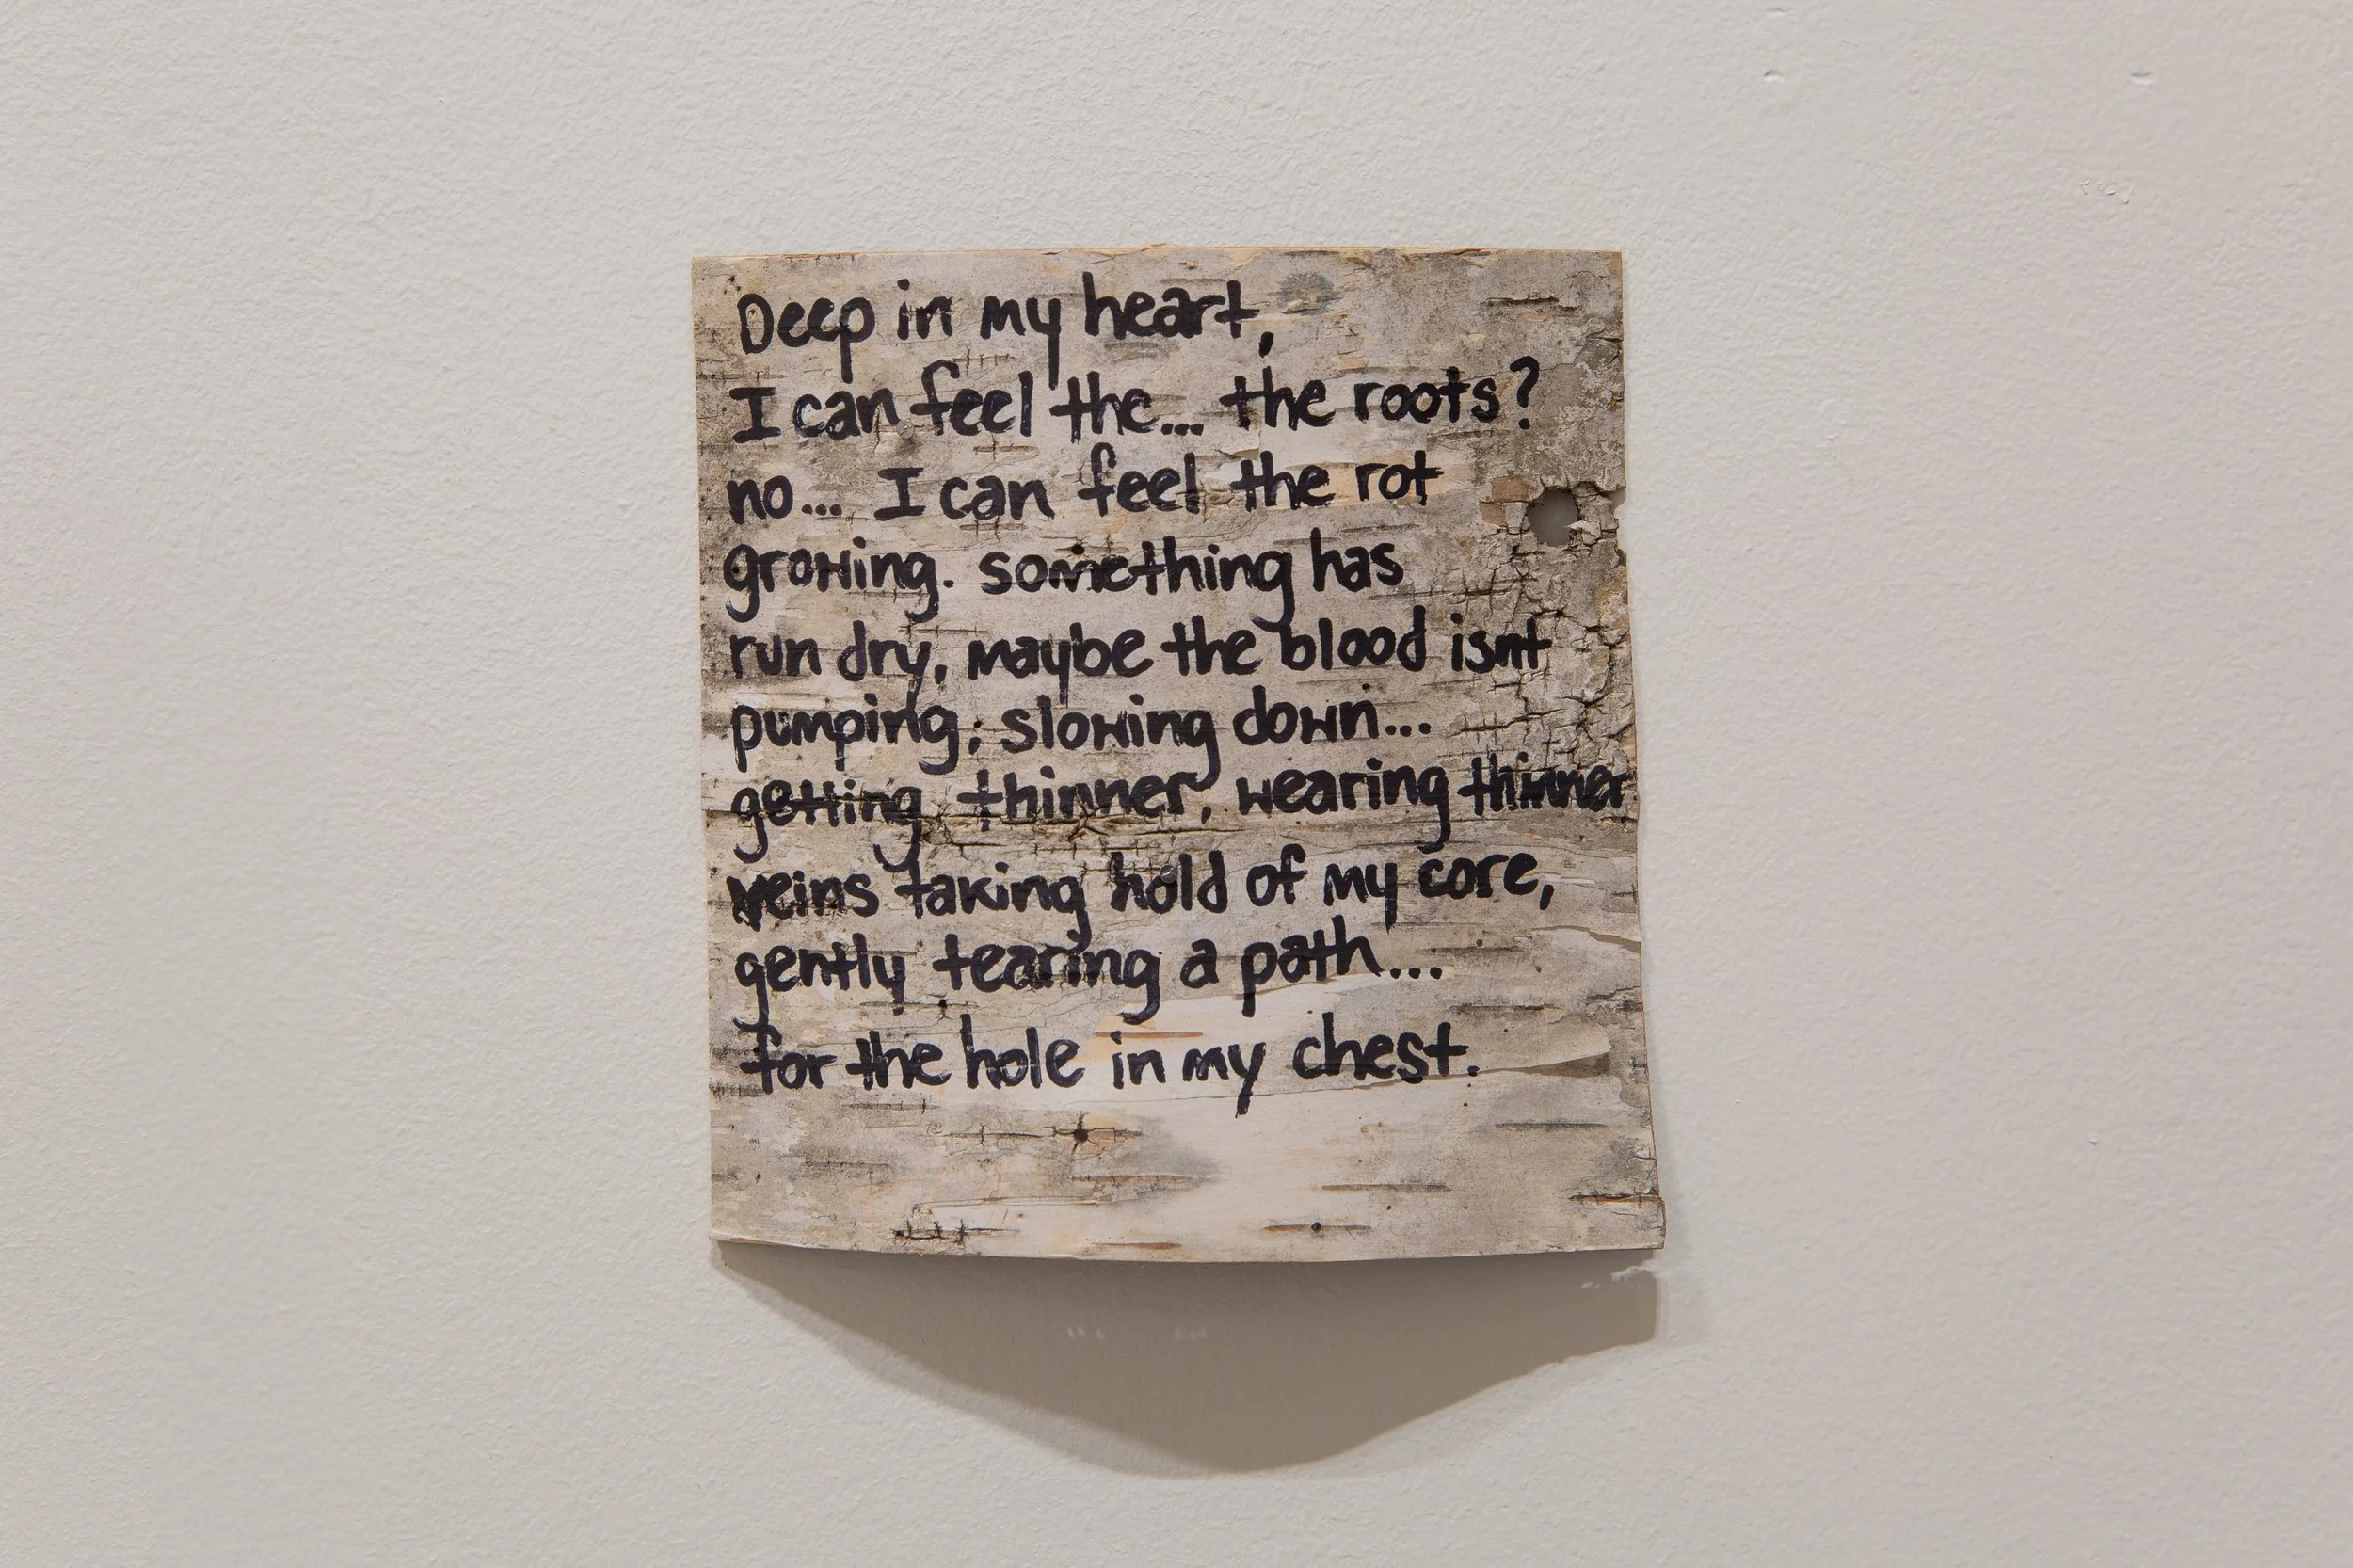 Deep in my heart,
I can feel the... the roots?
no... I can feel the rot
growing. something has
run dry, maybe the blood isnt
pumping; slowing down...
getting thinner, wearing thinner
veins taking hold of my core,
gently tearing a path...
for the hole in my chest.